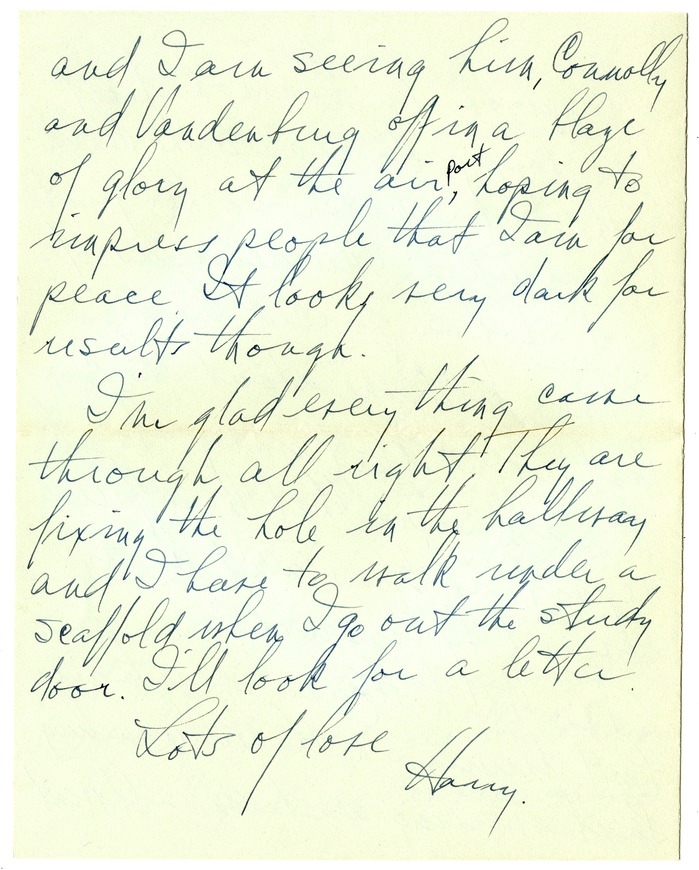 and I am seeing him, Connolly
and Vandenburg off in a blaze
of glory at the air port, hoping to
impress people that I am for
peace. It looks very dark for
results though.
I'm glad every thing came
through all right. They are
fixing the hole in the hallway
and I have to walk under a
scaffold when I go out the study
door. I'll look for a letter.
Lots of love
Harry.